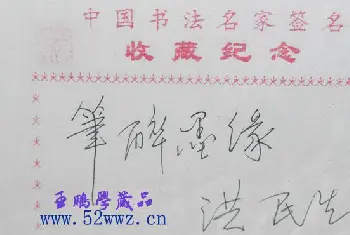 中国书法名家签名
收藏纪念
筆醉墨缘
洪民生
亚鹏學藏品
www.52wwz.cn